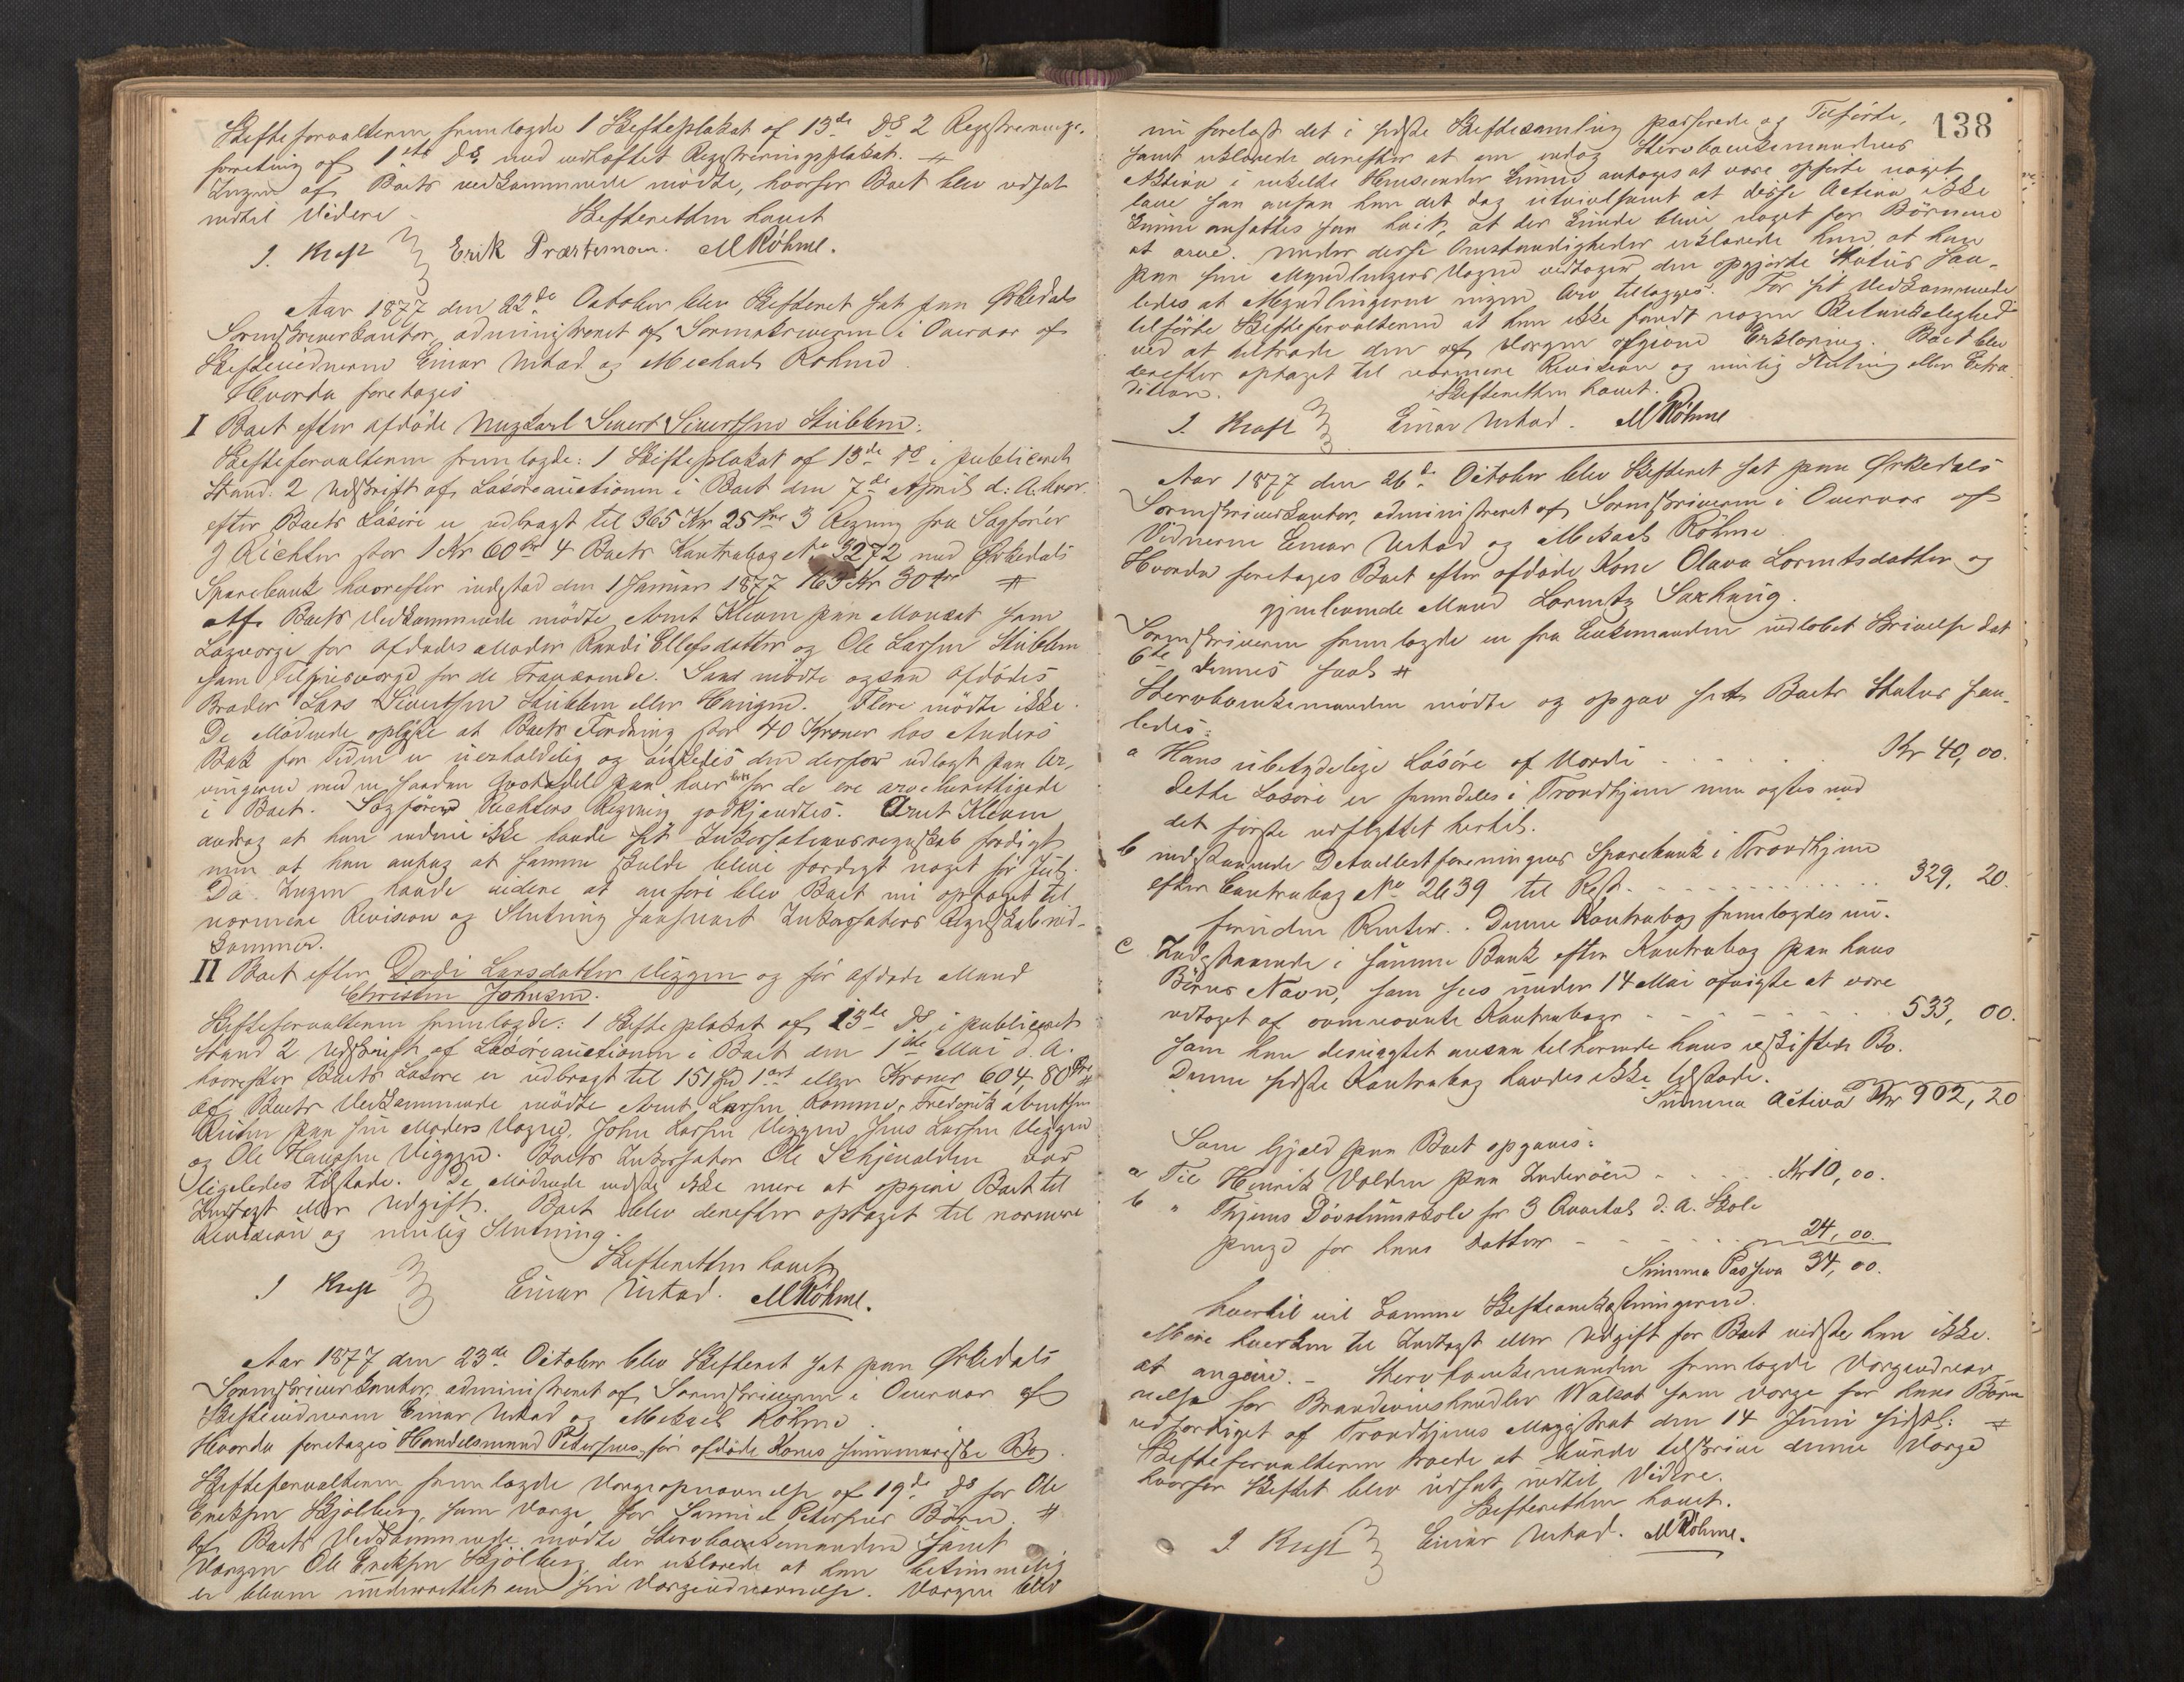 Skifteforvalteren fremlagde 1 Skifteplakat af 13de ds 2 Registrerings-
forretning af 1ste ds med vedhæftet Registreringsplakat. #
Ingen af Boets vedkommende mødte, hvorfor Boet blev udsat
indtil Videre. Skifteretten hævet
J. Kraft Erik Præstemoen. MRöhme.
Aar 1877 den 22de October blev Skifteret sat paa Ørkedals
Sorenskriverkontor, administreret af Sorenskriveren i Overvær af
Skiftevidnerne Einar Urstad og Michael Röhme
Hvorda foretoges
I Boet efter afdøde Ungkarl Sivert Sivertsen Stubben.
Skifteforvalteren fremlagde: 1 Skifteplakat af 13de ds i publiceret
Stand. 2 Udskrift af Løsøreauctionen i Boet den 7de April d: A: hvor-
efter Boets Løsøre er udbragt til 365 Kr 25 Øre 3 Regning fra Sagfører
J Richter stor 1 Kr 60 Øre 4 Boets Kontrabog No 3272 med Ørkedals
Sparebank hvorefter indestod den 1 Januar 1877 163 Kr 30 Øre #
Af Boets Vedkommende mødte Arnt Kleven paa Monset som
Laugværge for afdødes Moder Randi Ellefsdatter og Ole Larsen Stubben
som Tilsynsværge for de Fraværende. Saa mødte ogsaa Afdødes
Broder Lars Sivertsen Stubben eller Haugen. Flere mødte ikke.
De Mødende oplyste at Boets Fordring stor 40 Kroner hos Anders
Bak for Tiden er uerholdelig og ønskedes den derfor udlagt paa Ar-
vingerne med en saadan Qvotadel paa hver som de ere arveberettigede
i Boet. Sagfører Richters Regning godkjendtes. Arnt Kleven
androg at han endnu ikke havde sit Incassationsregnskab færdigt
men at han antog at samme skulde blive færdigt noget før Jul.
Da Ingen havde videre at anføre blev Boet nu optaget til
nærmere Revision og Slutning saasnart Incassators Regnskab ind-
kommer.
II Boet efter Dordi Larsdatter Viggen og før afdøde Mand
Christen Johnsen.
Skifteforvalteren fremlagde: 1 Skifteplakat af 13de ds i publiceret
Stand 2 Udskrift af Løsøreauctionen i Boet den 1ste Mai d. A.
hvorefter Boets Løsøre er udbragt til 151 Spd 1 ort eller Kroner 604, 80 Øre #
Af Boets Vedkommende mødte Arnt Larsen Komme, Frederik Arntsen
paa sin Moders Vegne, John Larsen Viggen Jens Larsen Viggen
og Ole Hansen Viggen. Boets Incassator Ole Schjenalden var
ligeledes tilstede. De Mødende vidste ikke mere at opgive Boet til
Indtægt eller Udgift. Boet blev derefter optaget til nærmere
Revision og mulig Slutning.
Skifteretten hævet
J Kraft Einar Urstad. MRöhme.
Aar 1877 den 23de October blev Skifteret sat paa Ørkedals
Sorenskriverkontor, administreret af Sorenskriveren i Overvær af
Skiftevidnerne Einar Urstad og Michael Röhme
Hvorda foretoges Handelsmand Petersens før afdøde Kones summariske Bo.
Skifteforvalteren fremlagde Værgeopnævnelse af 19de ds for Ole
Eriksen Skjølberg, som Værge, for Samuel Petersens Børn. #
Af Boets Vedkommende mødte Stervboenkemanden samt
Værgen Ole Eriksen Skjølberg der erklærede at han betimmelig
er bleven underrettet om sin Værgeudnævnelse. Værgen blev
138
nu forelæst det i sidste Skiftesamling passerede og Tilførte,
samt erklærede derefter at om endog Stervboenkemandens
Aktiva i enkelte Henseender kunne antages at være opførte noget
lave saa ansaa han det dog utvivlsomt at disse Activa ikke
kunne ansættes saa høit, at der kunde blive noget for Børnene
at arve. Under disse Omstændigheder erklærede han, at han
paa sine Myndlingers Vegne vedtager den opgjorte Status saa-
ledes at Myndlingerne ingen Arv tillægges. For sit Vedkommende
tilførte Skifteforvalteren at han ikke fandt nogen Betænkelighed
ved at tiltræde den af Værgen afgivne Erklæring. Boet blev
derefter optaget til nærmere Revision og mulig Slutning eller Extra-
dition. Skifteretten hævet.
J. Kraft Einar Urstad. MRöhme
Aar 1877 den 26de October blev Skifteret sat paa Ørkedals
Sorenskriverkontor, administreret af Sorenskriveren i Overvær af
Vidnerne Einar Urstad og Michael Röhme
Hvorda foretoges Boet efter afdøde Kone Olava Lorentsdatter og
gjenlevende Mand Lorentz Saxhaug.
Sorenskriveren fremlagde en fra Enkemanden indløbet Skrivelse dat
6te dennes saal #
Stervboenkemanden mødte og opgav sit Boets Status saa-
ledes:
a Hans ubetydelige Løsøre af Værdi Kr 40,00.
dette Løsøre er fremdeles i Trondhjem men agtes med
det første udflyttet hertil.
b indestaaende Detaillistforeningens Sparebank i Trondhjem
efter Contrabog No 2639 til Rest 329, 20.
foruden Renter. Denne Kontrabog fremlagdes nu.
c Indestaaende i samme Bank efter Kontrabog paa hans
Børns Navn, som sees under 14 Mai afvigte at være
udtaget af ovennævnte Kontrabog 533, 00.
som han desuagtet ansaa tilhørende hans uskiftede Bo.
Denne sidste Kontrabog havdes ikke tilstede.
Summa Activa Kr 902,20
Som Gjæld paa Boet opgaves:
a Til Henrik Volden paa Inderøen Kr 10,00.
b " Thjems Døvstumskole for 3 Qvartal d. A. Skole
penge for hans Datter 24,00.
Summa Passiva 34,00.
hvortil vil komme Skifteomkostningerne.
Mere hverken til Indtægt eller Udgift for Boet vidste han ikke
at angive. - Stervboenkemanden fremlagde Værgeudnæv-
nelse for Brændevinshandler Walsøt som Værge for hans Børn
udfærdiget af Trondhjems Magistrat den 14 Juni sidstl: #
Skifteforvalteren troede at burde tilskrive denne Værge
hvorfor Skiftet blev udsat indtil Videre.
Skifteretten hævet.
J. Kraft Einar Urstad. MRöhme.